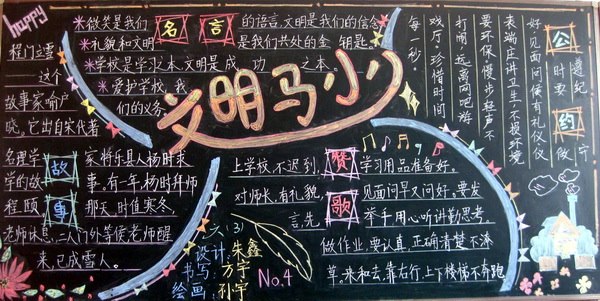 happy
*微笑是我们 名言 的语言,文明是我们的信念
*礼貌和文明 是我们共处的金 钥匙。
*学校是学习之本,文明是成 功 之本。
*爱护学校,我
们的义务。
程门立雪
——这个
故事家喻户
晓。它出自宋代著
名理学 故事 家将乐县人杨时求
学的故 事。有一年,杨时拜师
程颐, 那天,时值寒冬,
老师休息,二人门外等侯老师醒
来,已成雪人。
文明马小
公约
遵纪守
时要做
好,见面问候有礼仪,仪
表端庄讲卫生,不损环境
要环保,慢步轻声不
打闹,远离网吧游
戏厅,珍惜时间
每一秒。
赞歌
上学校,不迟到, 学习用品准备好。
对师长,有礼貌, 见面问早又问好,要发
言,先 举手用心听讲勤思考。
做作业,要认真,正确清楚不潦
草。来和去,靠右行,上下楼梯不奔跑
六(3)
设计:朱鑫
书写:方宇
绘画:孙宇
No.4